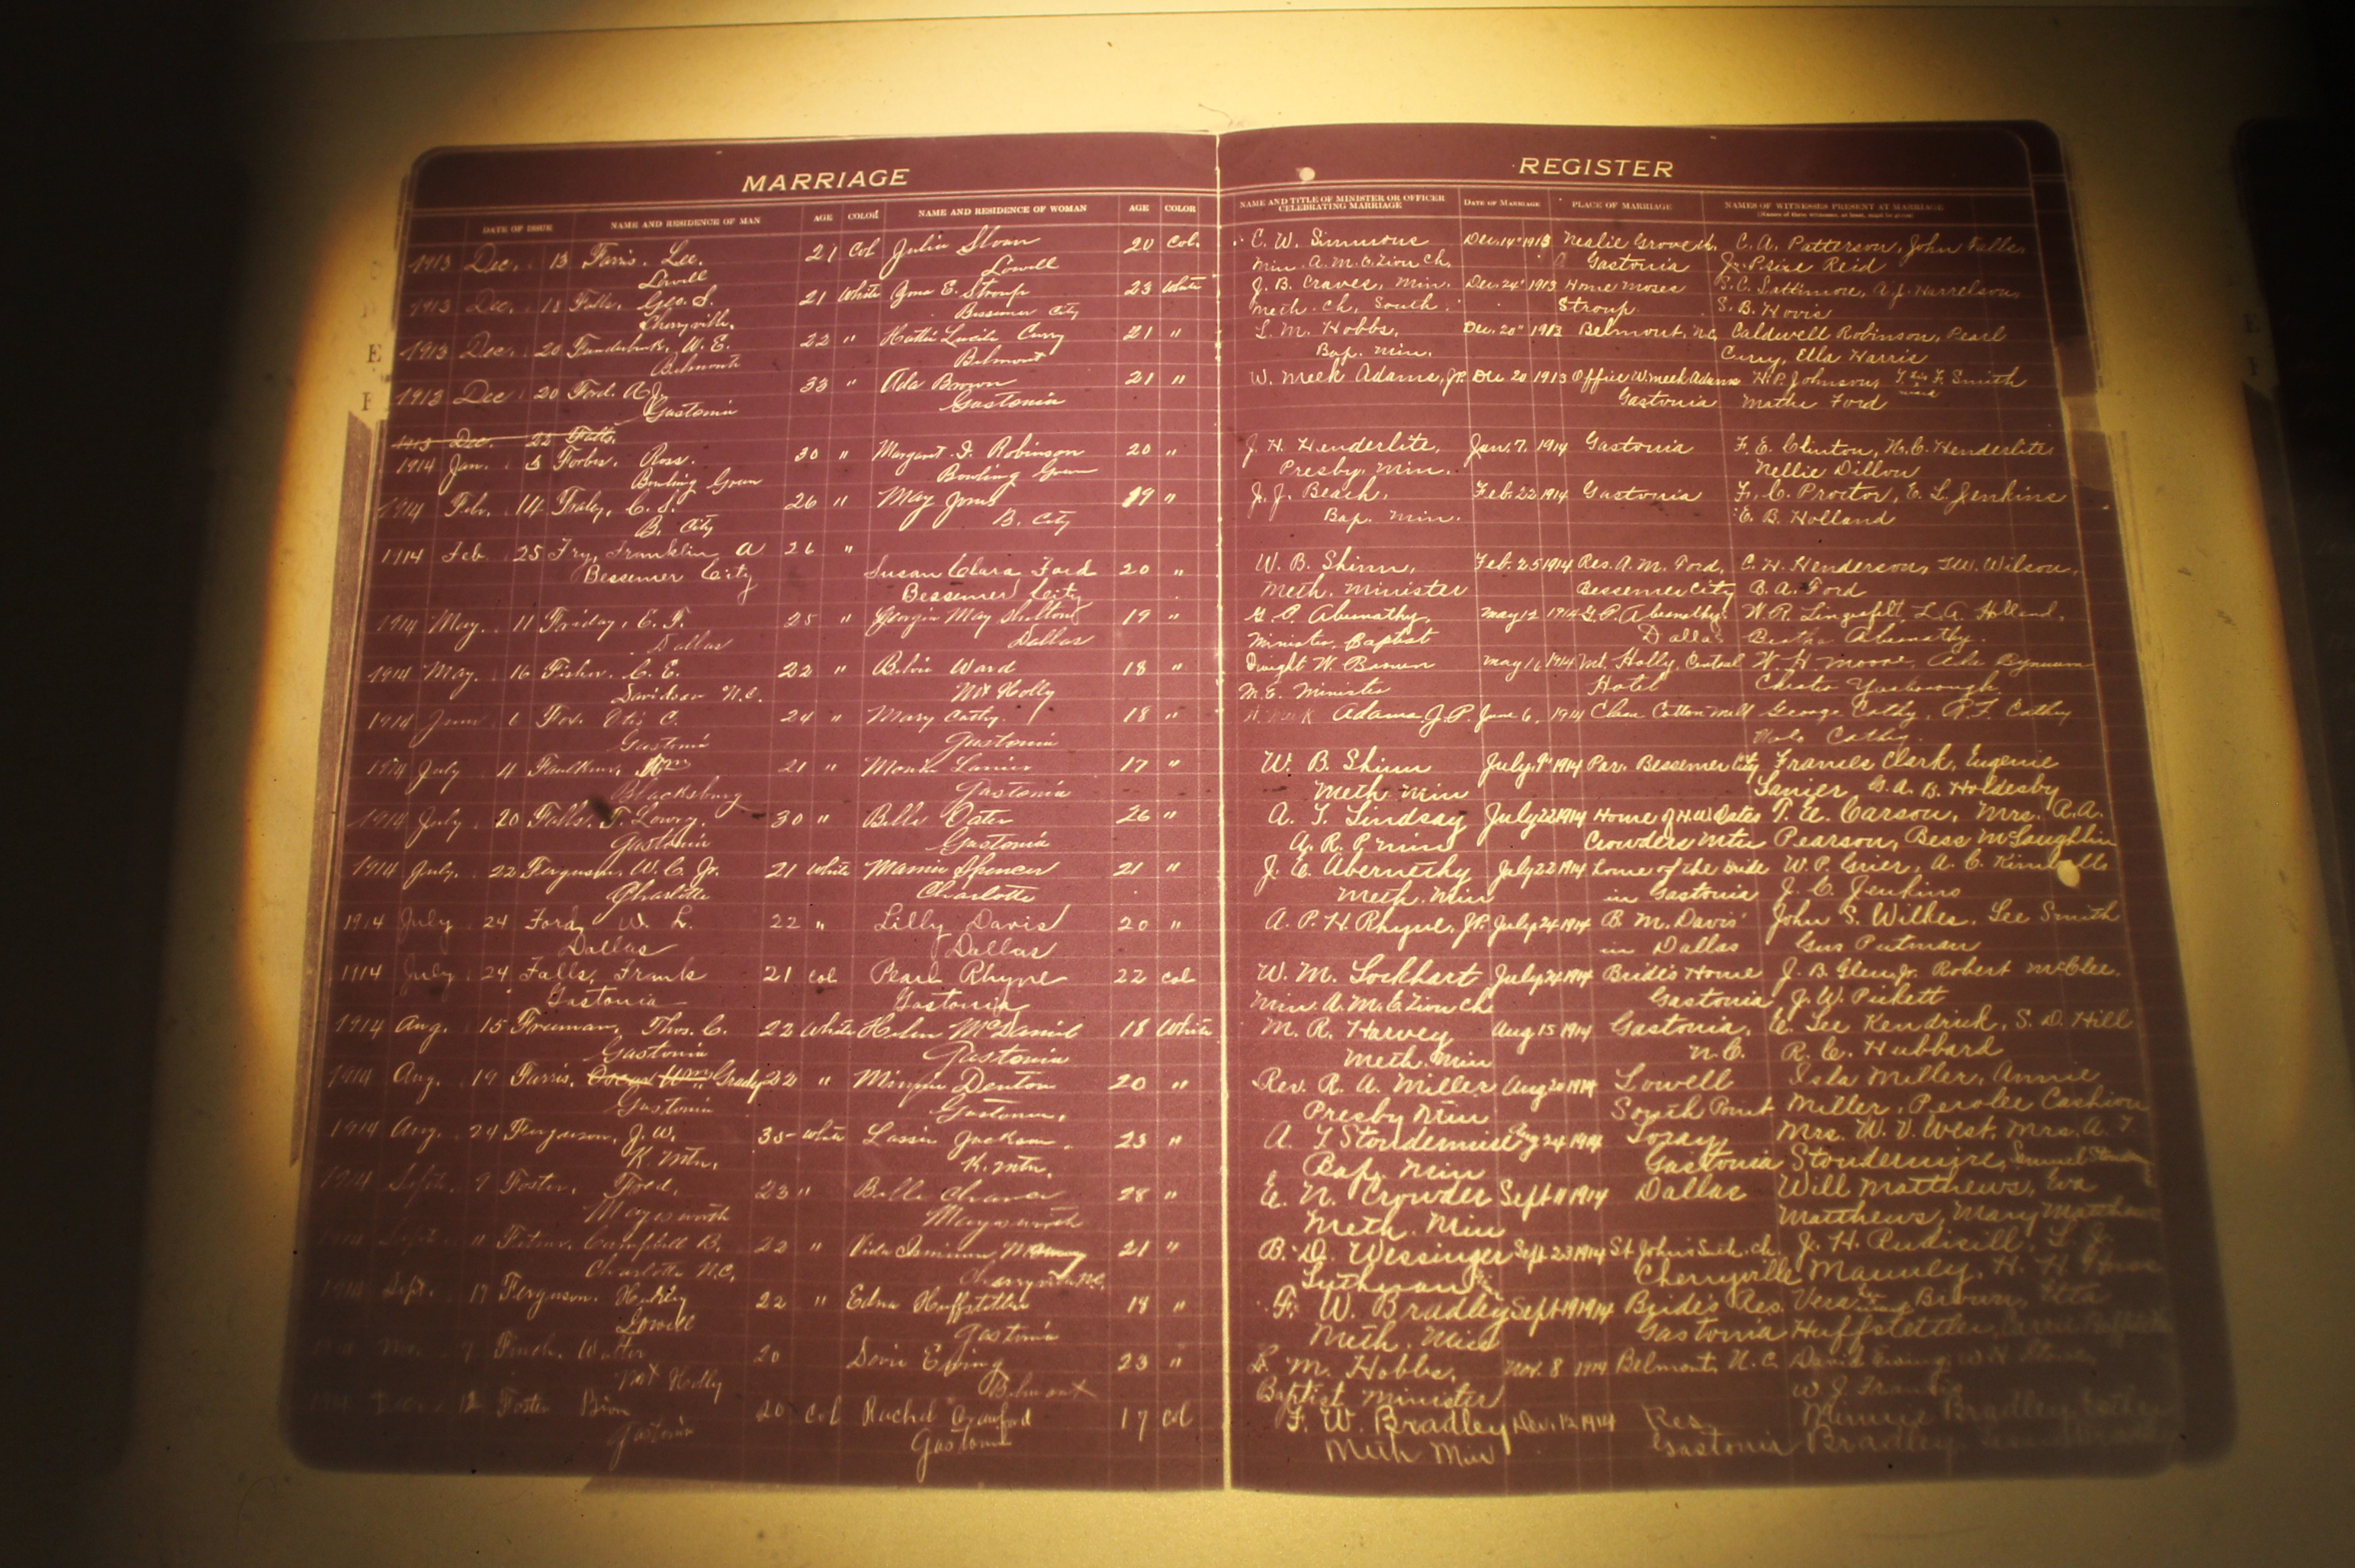 MARRIAGE
DATE OF ISSUE NAME AND RESIDENCE OF MAN AGE COLOR NAME AND RESIDENCE OF WOMAN AGE COLOR
1913 Dec. 13 Farris. Lee. 21 Col Julia Sloan 20 Col.
Lowell Lowell
1913 Dec. 18 Falls, Geo. S. 21 White E. Stroup 23 White
Cherryville. Bessemer City
1913 Dec. 20 Funderburk, W. E. 22 " Hattie Lucile Curry 21 "
Belmont Belmont
1913 Dec. 20 Ford. A. J. 33 " Ada Brown 21 "
Gastonia Gastonia
1913 Dec. 22 Falls.
1914 Jan. 5 Forbes. Ross. 30 " Margaret I. Robinson 20 "
Bowling Green Bowling Green
1914 Feb. 14 Fraley, C. S. 26 " May Jones 19 "
B. City B. City
1914 Feb. 25 Fry, Franklin A 26 "
Bessemer City Susan Clara Ford 20 "
Bessemer City
1914 May. 11 Friday, E. F. 25 " Georgia May Shelton 19 "
Dallas Dallas
1914 May. 16 Fisher. C. E. 22 " Ward 18 "
Davidson N.C. Mt Holly
1914 June 6 Fox. Otis C. 24 " Mary Cathy. 18 "
Gastonia Gastonia
1914 July 4 Faulkner, Wm 21 " Lanier 17 "
Blacksburg Gastonia
1914 July 20 Falls. T. Lowry. 30 " Belle Oates 26 "
Gastonia Gastonia
1914 July. 22 Ferguson, W. C. Jr. 21 White Mamie Spencer 21 "
Charlotte Charlotte
1914 July 24 Ford, W. L. 22 " Lilly Davis 20 "
Dallas Dallas
1914 July 24 Falls, Frank 21 col Pearl Rhyne 22 col
Gastonia Gastonia
1914 Aug. 15 Freeman, Thos. C. 22 White Helen McDaniel 18 White
Gastonia Gastonia
1914 Aug. 19 Farris. Oscar Wm Grady 22 " Minnie Denton 20 "
Gastonia Gastonia.
1914 Aug. 24 Ferguson, J. W. 35 White Lassie Jackson. 23 "
K. Mtn. K. Mtn.
1914 Sept. 9 Foster, Fred. 23 " Belle 28 "
Mayesworth Mayesworth
1914 Sept. 11 Campbell B. 22 " 21 "
Charlotte N.C. Cherryville N.C.
1914 Sept. 17 Ferguson. 22 " Edna Huffstetler 18 "
Lowell Gastonia
7 Finch. Walter 20 Ewing 23 "
Mt Holly Belmont
12 Foster 20 col Rachel Crawford 17 col
Gastonia Gastonia
REGISTER
NAME AND TITLE OF MINISTER OR OFFICER CELEBRATING MARRIAGE DATE OF MARRIAGE PLACE OF MARRIAGE NAMES OF WITNESSES PRESENT AT MARRIAGE
C. W. Simmons Dec. 14" 1913 Nealie Grove Ch. C. A. Patterson, John Falls,
Min. A. M. E. Zion Ch. Gastonia J. Price Reid
J. B. Craven, Min. Dec. 24" 1913 Home Moses B. C. Lattimore, A. J. Harrelson,
Meth. Ch. South. Stroup. S. B. Hovis
L. M. Hobbs, Dec. 20" 1913 Belmont, N.C. Caldwell Robinson, Pearl
Bap. Min. Curry, Ella Harris
W. Meek Adams, J.P. Dec 20 1913 Office W. Meek Adams H. P. Johnson, F. Smith
Gastonia Mathe Ford
J. H. Henderlite, Jan. 7. 1914 Gastonia F. E. Clinton, N. C. Henderlite
Presby. Min. Nellie Dillon
J. J. Beach, Feb. 22 1914 Gastonia F. C. Proctor, E. L. Jenkins
Bap. Min. E. B. Holland
W. B. Shinn, Feb. 25 1914 Res. A. M. Ford, C. H. Henderson, Wilson,
Meth. Minister Bessemer City B. A. Ford
G. P. Abernathy, May 12 1914 G. P. Abernathy. W. R. Lingafelt, L. A. Holland,
Minister, Baptist Dallas Abernathy.
Dwight W. Brown May 16 1914 Mt. Holly, Central W. H. Moore, Bynum
M. E. Minister Hotel Chester Yarborough
W. Meek Adams J. P. June 6, 1914 Clara Cotton Mill George Cathy, R. F. Cathy
Cathy.
W. B. Shinn July 9" 1914 Par. Bessemer City Frances Clark, Eugenie
Meth Min Lanier, G. A. B. Holdesby
A. T. Lindsay July 22 1914 Home of H. W. Oates T. E. Carson, Mrs. R. A.
A. R. P. Min Crowders Mtn Pearson, Bess McLaughlin
J. E. Abernethy July 22 1914 Home of the Bride W. P. Grier, A. C.
Meth. Min in Gastonia J. C. Jenkins
A. P. H. Rhyne, J.P. July 24 1914 B. M. Davis' John S. Wilkes. Lee Smith
in Dallas Gus Putman
W. M. Lockhart July 24 1914 Bride's Home J. B. Glen, Jr. Robert McClee.
Min. A. M. E Zion Ch Gastonia J. W. Pickett
M. R. Harvey Aug 15 1914 Gastonia, E. Lee Kendrick, S. D. Hill
Meth. Min N. C. R. C. Hubbard
Rev. R. A. Miller Aug 20 1914 Lowell Isla Miller, Annie
Presby Min South Point Miller, Perolee Cashion
A. T Stoudermire Aug 24 1914 Loray, Mrs. W. V. West, Mrs. A. T.
Bap. Min Gastonia Stoudermire,
E. N. Crowder Sept 11 1914 Dallas Will Matthews, Eva
Meth. Min Matthews, Mary Matthews
B. D. Wessinger Sept. 23 1914 St John's Luth. Ch. J. H. Rudisill, L. J.
Lutheran Cherryville Mauney, H. H.
F. W. Bradley Sept 19 1914 Bride's Res. Vera Brown, Etta
Meth. Min Gastonia Huffstettler,
L. M. Hobbs, Nov. 8 1914 Belmont, N. C. David Ewing, W. H. Stowe,
Baptist Minister W. J. Francis
F. W. Bradley Dec. 12 1914 Res. Minnie Bradley, Esther
Meth Min Gastonia Bradley,